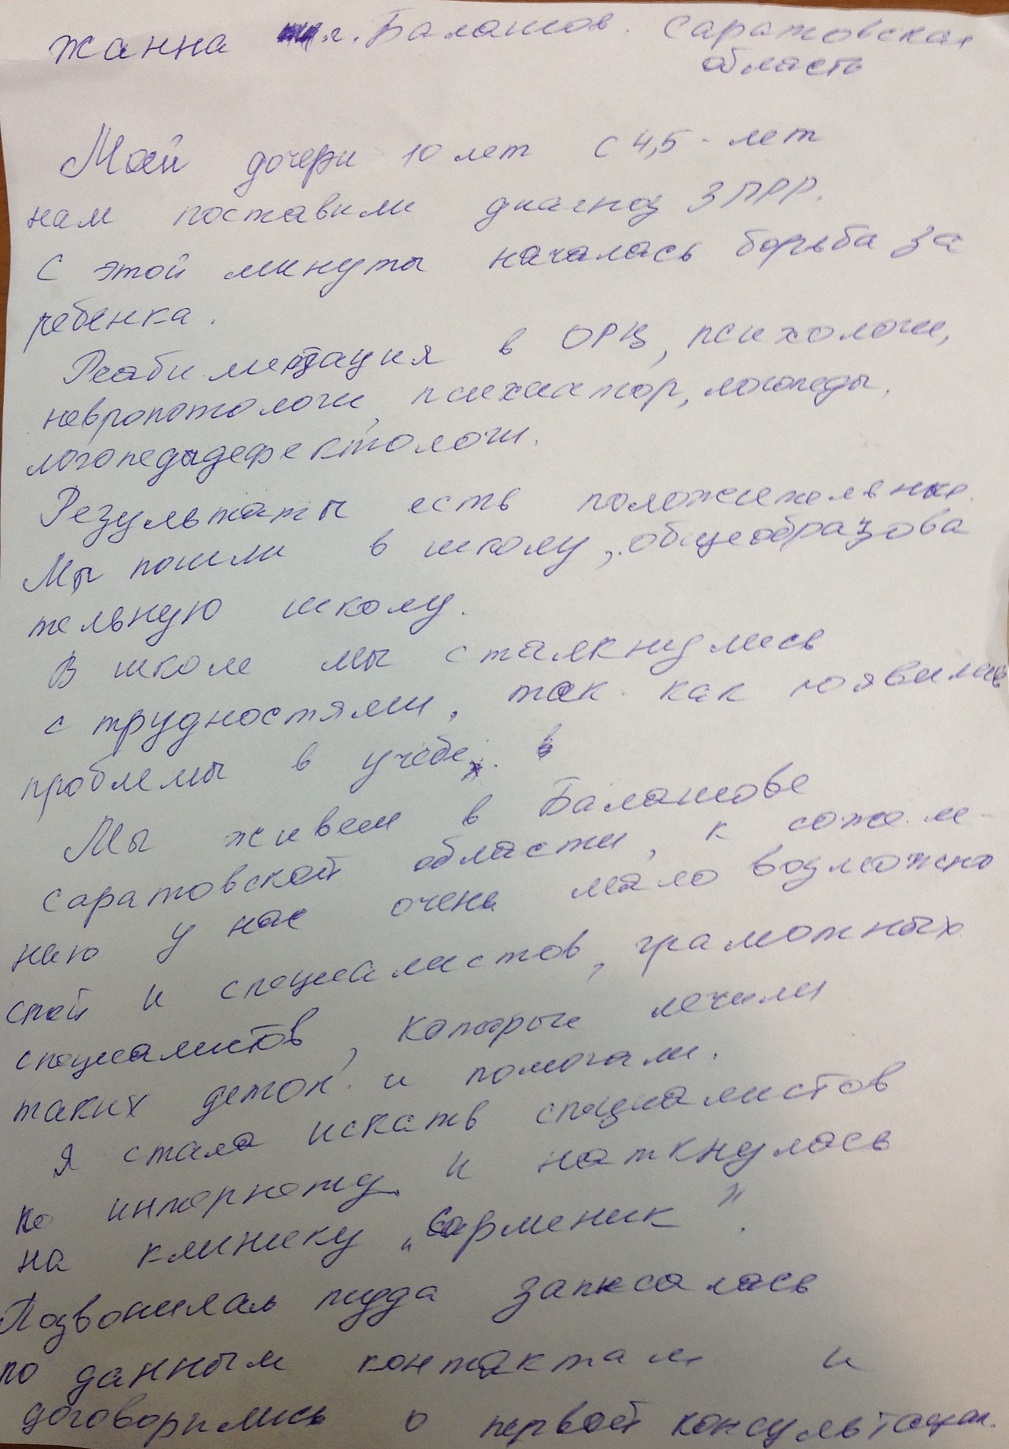 Жанна г. Балашов. Саратовская
область
Моей дочери 10 лет с 4,5 - лет
нам поставили диагноз ЗПРР.
С этой минуты началась борьба за
ребенка.
Реабилитация в ОРЦ, психологи,
невропотологи, психиатор, логопеды,
логопедыдефектологи.
Результаты есть положительные.
Мы пошли в школу, общеобразова
тельную школу.
В школе мы сталкнулись
с трудностями, так как появились
проблемы в учебе. в
Мы живем в Балашове
саратовской области, к сожеле-
нию у нас очень мало возможно
стей и специалистов, грамотных
специалистов, которые лечили
таких деток и помогали.
Я стала искать специалистов
по интернету и наткнулась
на клинику „Сарменик".
Позвонилаь туда записалась
по данным контактам и
договорились о первой консультации.